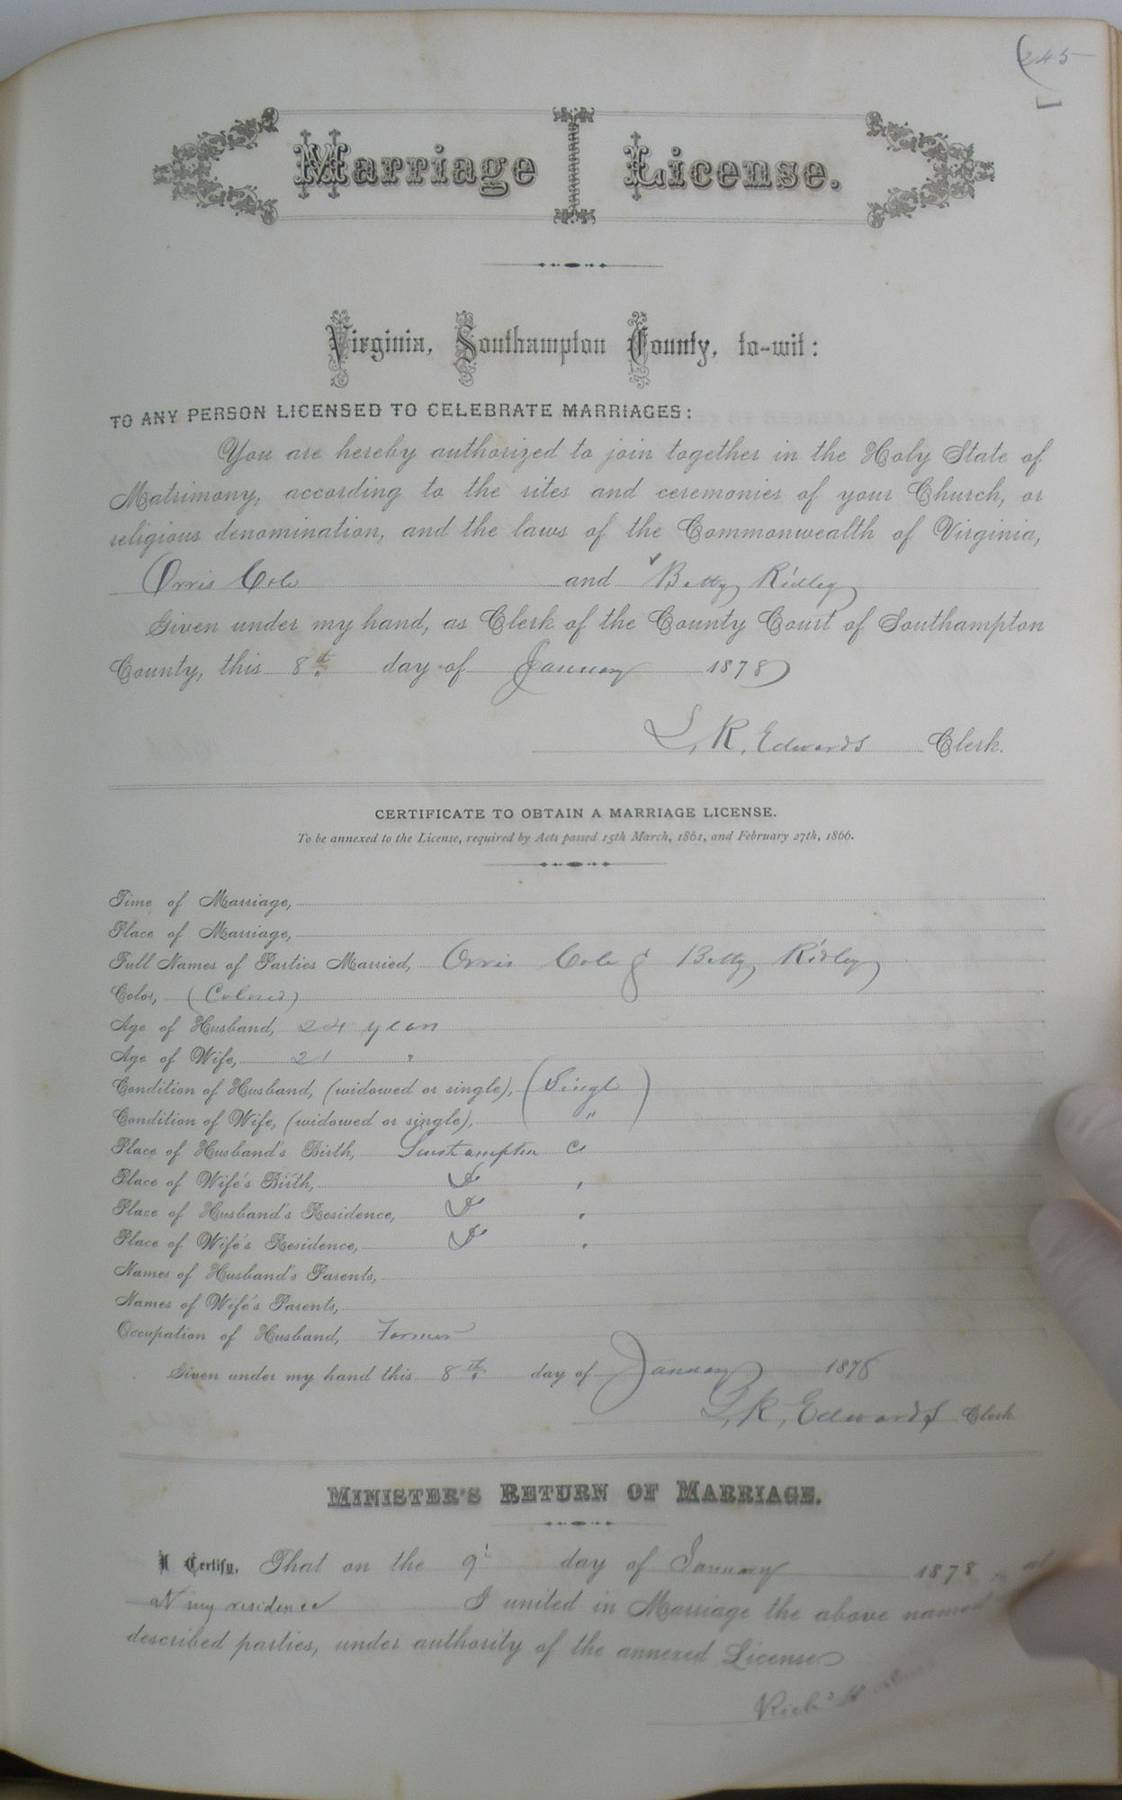 245
Marriage License.
Virginia, Southampton County, to-wit:
TO ANY PERSON LICENSED TO CELEBRATE MARRIAGES:
You are hereby authorized to join together in the Holy State of
Matrimony, according to the rites and ceremonies of your Church, or
religious denomination, and the laws of the Commonwealth of Virginia,
Orris Cole and Betty Ridley
Given under my hand, as Clerk of the County Court of Southampton
County, this 8th day of January 1878
L. R. Edwards Clerk.
CERTIFICATE TO OBTAIN A MARRIAGE LICENSE.
To be annexed to the License, required by Acts passed 15th March, 1861, and February 27th, 1866.
Time of Marriage,
Place of Marriage,
Full Names of Parties Married, Orris Cole & Betty Ridley
Color, (Colored)
Age of Husband, 24 years
Age of Wife, 21 "
Condition of Husband, (widowed or single), (Single
Condition of Wife, (widowed or single), " )
Place of Husband's Birth, Southampton Co
Place of Wife's Birth, Do "
Place of Husband's Residence, Do "
Place of Wife's Residence, Do "
Names of Husband's Parents,
Names of Wife's Parents,
Occupation of Husband, Farmer
Given under my hand this 8th day of January 1878
L. R. Edwards Clerk
MINISTER'S RETURN OF MARRIAGE.
I Certify, That on the 9' day of January 1878, at
at my residence I united in Marriage the above named
described parties, under authority of the annexed License
Richd